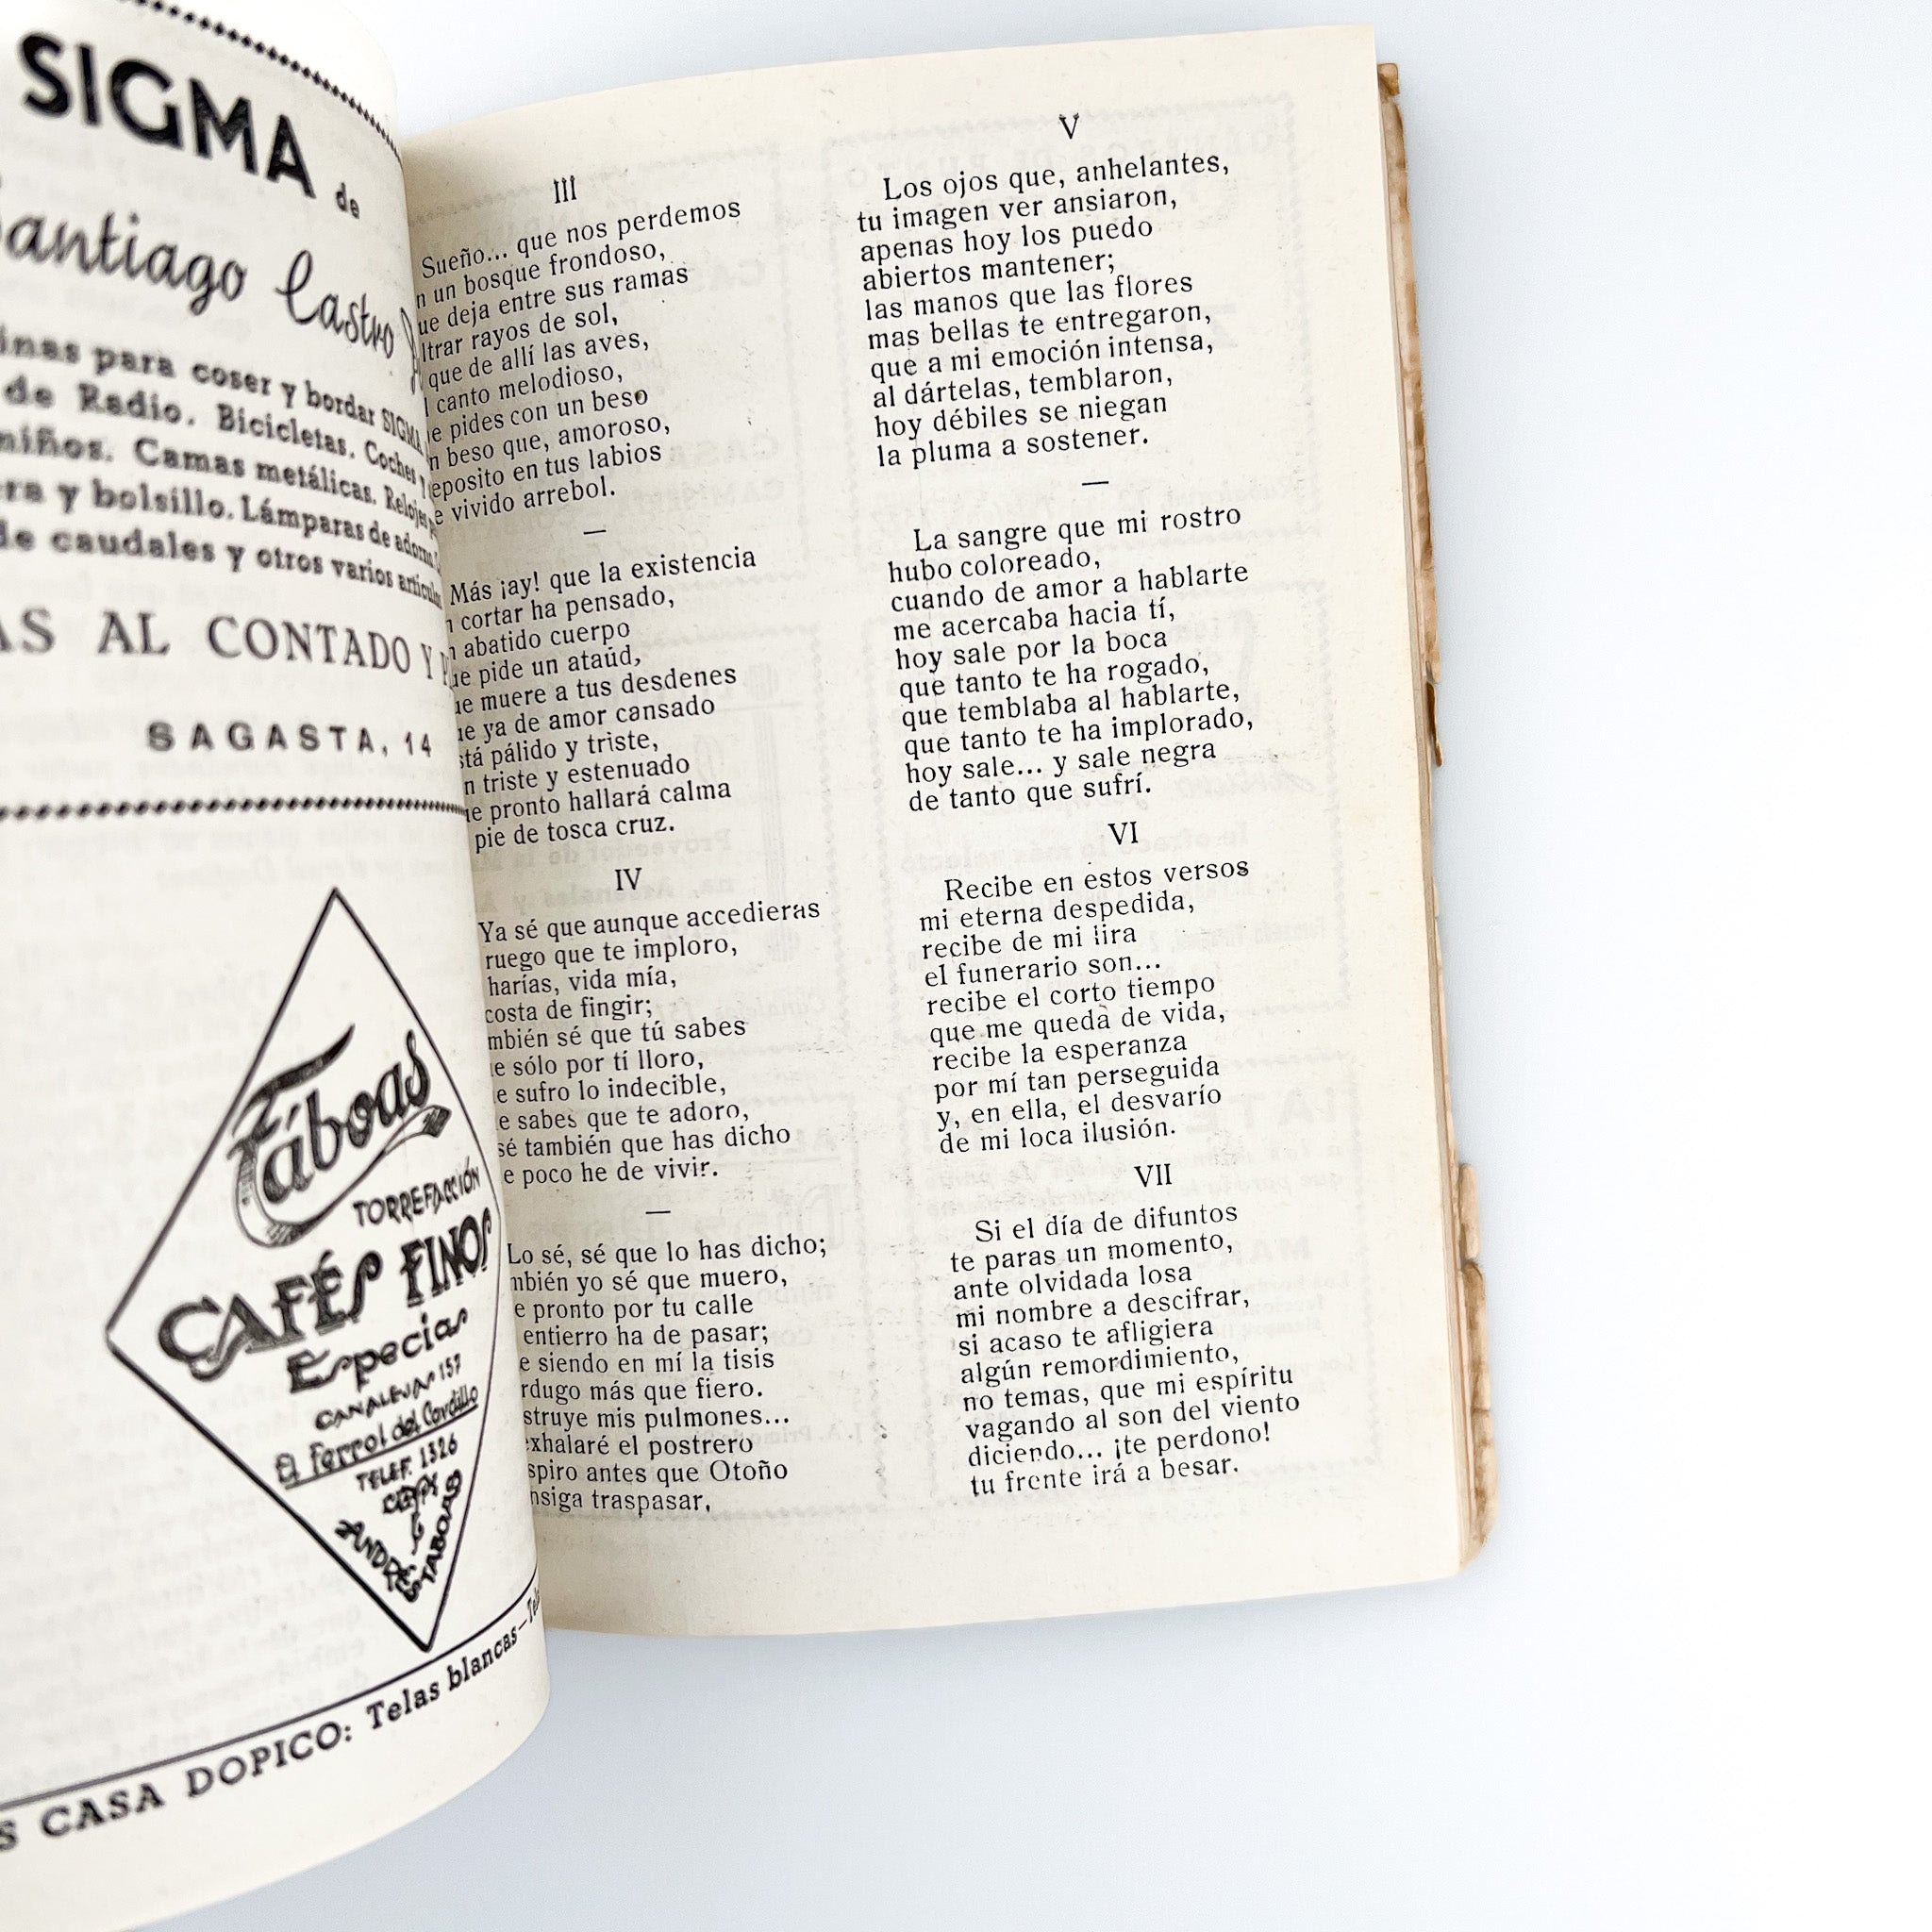 SIGMA de
Santiago Castro
para coser y bordar SIGMA
de Radio. Bicicletas. Coches
niños. Camas metálicas. Relojes
y bolsillo. Lámparas de adorno.
de caudales y otros varios
AL CONTADO Y
SAGASTA, 14
Táboas
TORREFACCIÓN
CAFÉS FINOS
Especias
CANALEJAS 157
El Ferrol del Caudillo
TELEF. 1326
ANDRÉS
TABOAS
CASA DOPICO: Telas blancas—
III
Sueño... que nos perdemos
un bosque frondoso,
deja entre sus ramas
rayos de sol,
que de allí las aves,
canto melodioso,
pides con un beso
beso que, amoroso,
en tus labios
vivido arrebol.
—
Más ¡ay! que la existencia
cortar ha pensado,
abatido cuerpo
pide un ataúd,
muere a tus desdenes
ya de amor cansado
pálido y triste,
triste y estenuado
pronto hallará calma
pie de tosca cruz.
IV
Ya sé que aunque accedieras
ruego que te imploro,
harías, vida mía,
costa de fingir;
sé que tú sabes
sólo por tí lloro,
sufro lo indecible,
sabes que te adoro,
sé también que has dicho
poco he de vivir.
—
Lo sé, sé que lo has dicho;
yo sé que muero,
pronto por tu calle
entierro ha de pasar;
siendo en mí la tisis
más que fiero.
mis pulmones...
exhalaré el postrero
antes que Otoño
traspasar,
V
Los ojos que, anhelantes,
tu imagen ver ansiaron,
apenas hoy los puedo
abiertos mantener;
las manos que las flores
mas bellas te entregaron,
que a mi emoción intensa,
al dártelas, temblaron,
hoy débiles se niegan
la pluma a sostener.
—
La sangre que mi rostro
hubo coloreado,
cuando de amor a hablarte
me acercaba hacia tí,
hoy sale por la boca
que tanto te ha rogado,
que temblaba al hablarte,
que tanto te ha implorado,
hoy sale... y sale negra
de tanto que sufrí.
VI
Recibe en estos versos
mi eterna despedida,
recibe de mi lira
el funerario son...
recibe el corto tiempo
que me queda de vida,
recibe la esperanza
por mí tan perseguida
y, en ella, el desvarío
de mi loca ilusión.
VII
Si el día de difuntos
te paras un momento,
ante olvidada losa
mi nombre a descifrar,
si acaso te afligiera
algún remordimiento,
no temas, que mi espíritu
vagando al son del viento
diciendo... ¡te perdono!
tu frente irá a besar.